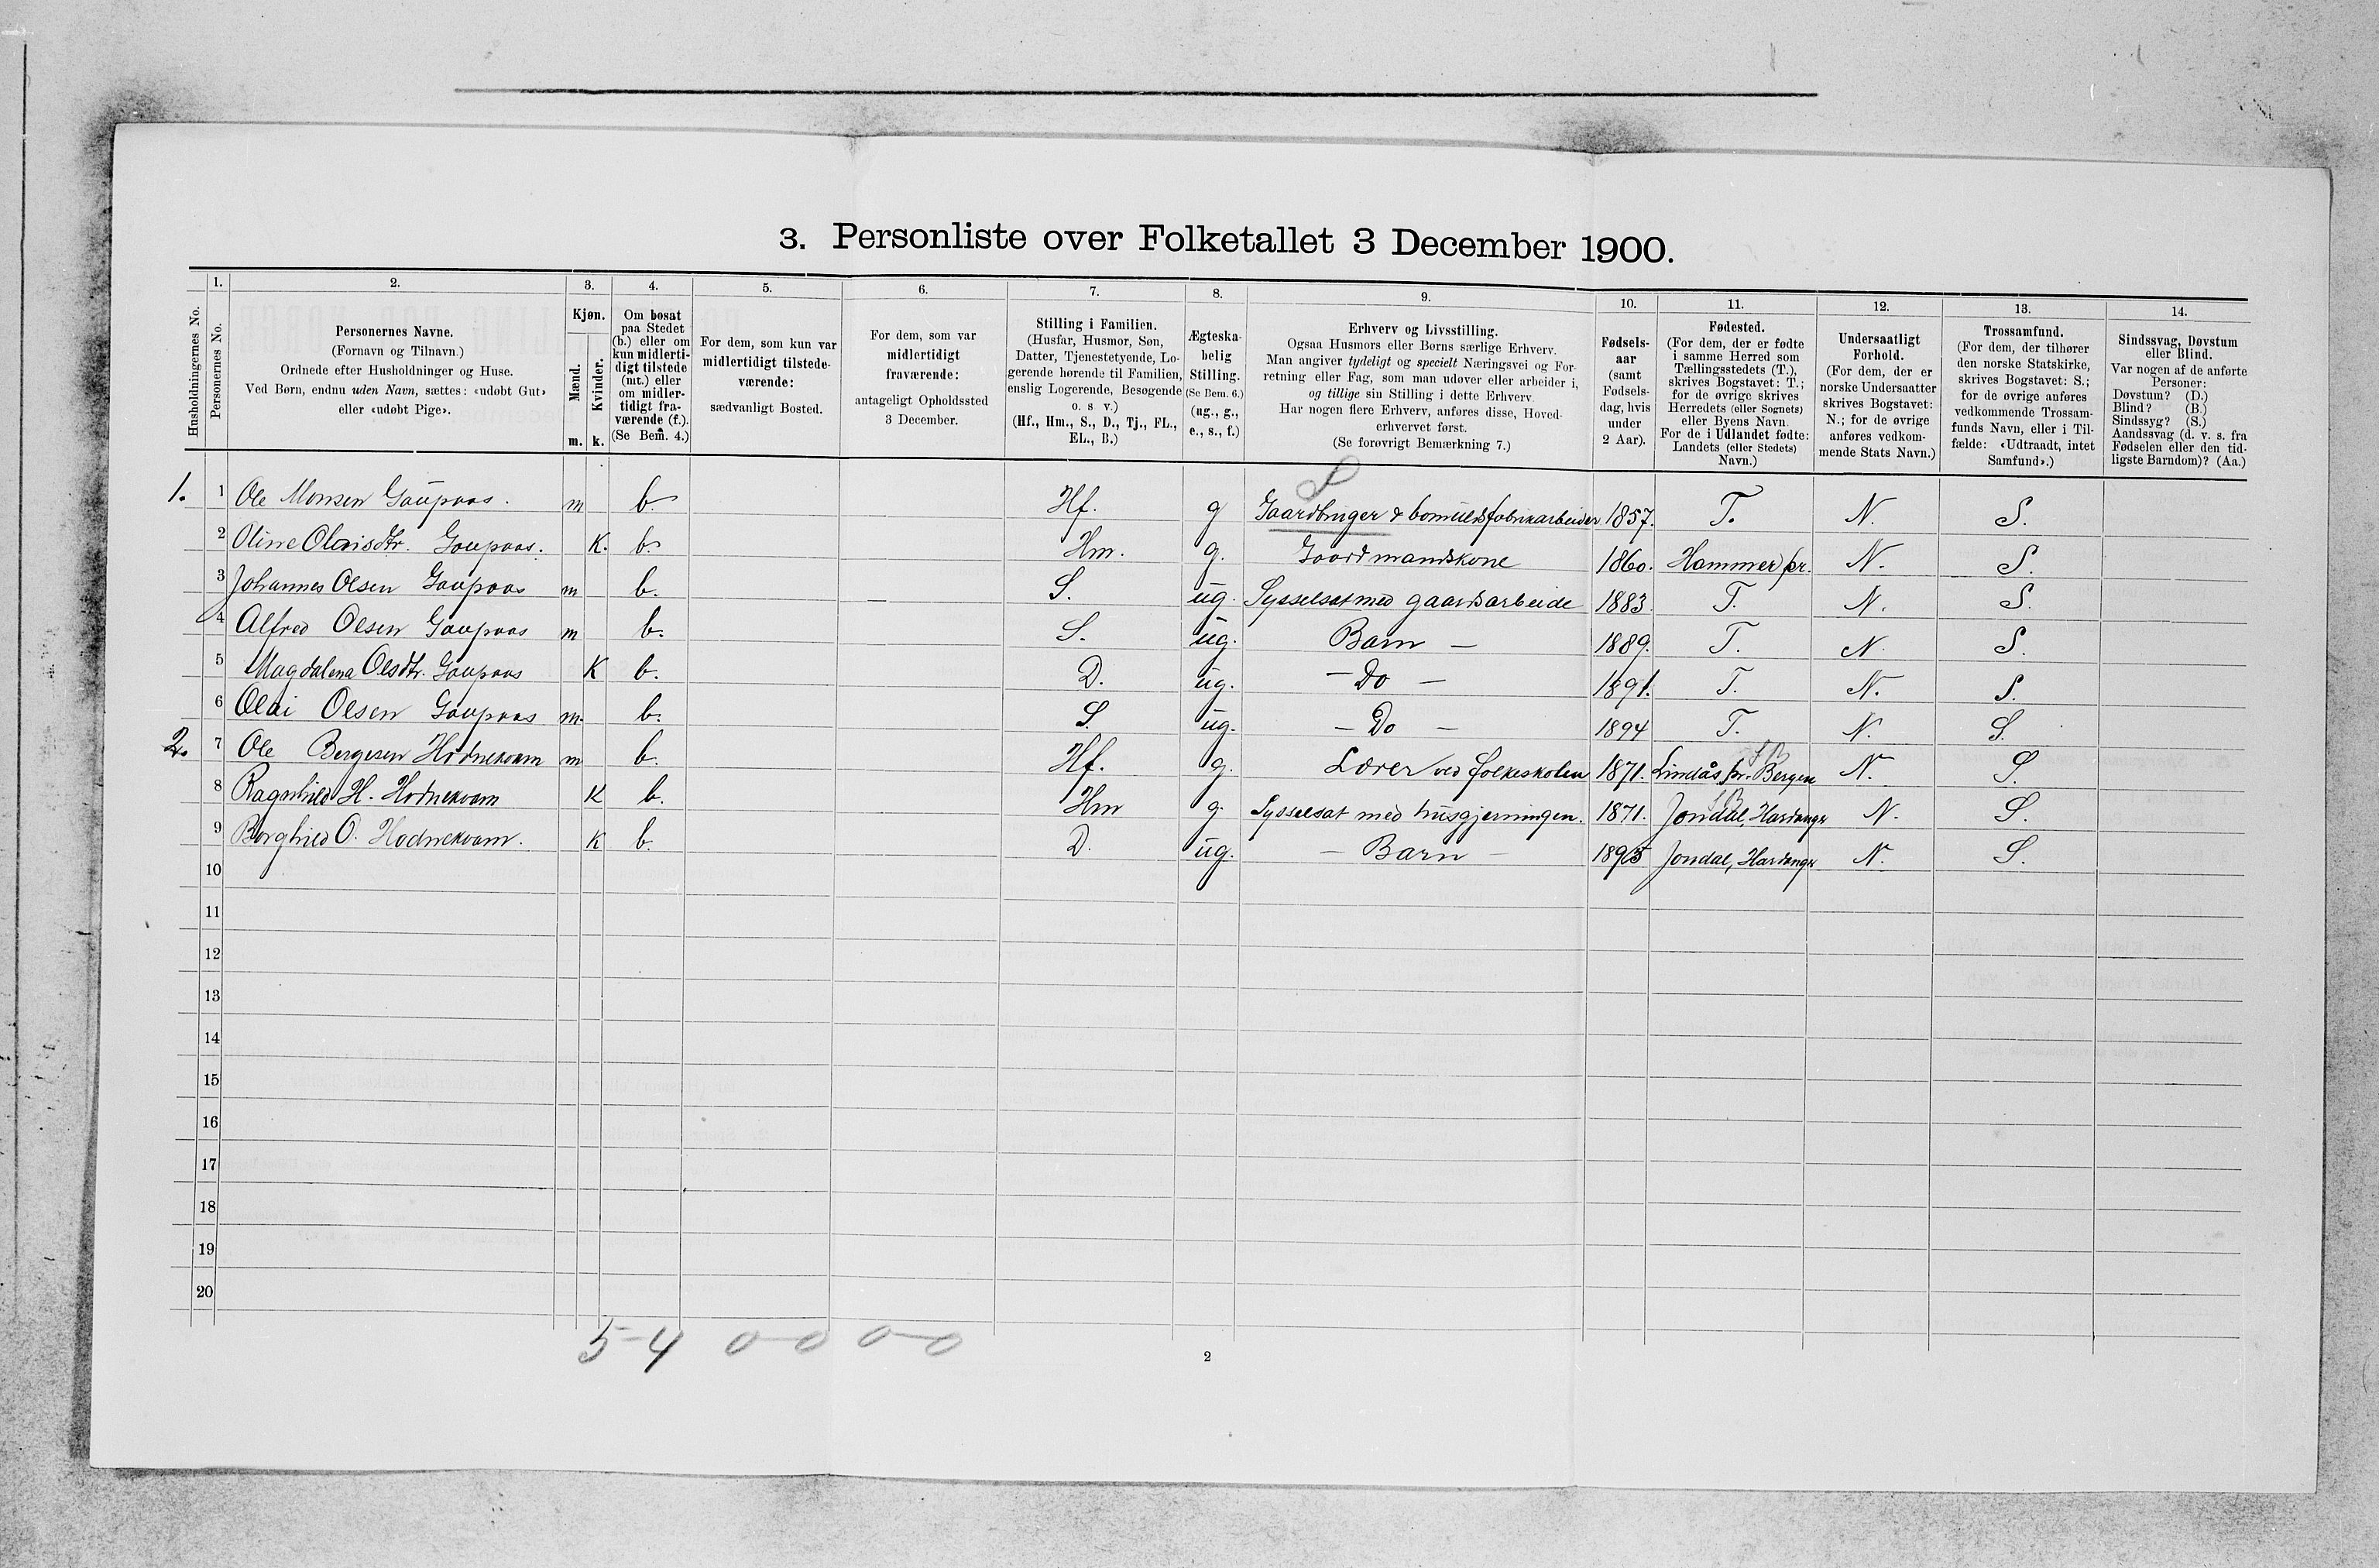 3. Personliste over Folketallet 3 December 1900.
1. 2. 3. 4. 5. 6. 7. 8. 9. 10. 11. 12. 13. 14.
Husholdningernes No.
Personernes No.
Personernes Navne.
(Fornavn og Tilnavn.)
Ordnede efter Husholdninger og Huse.
Ved Børn, endnu uden Navn, sættes: «udøbt Gut»
eller «udøbt Pige».
Kjøn.
Mænd.
Kvinder.
m. k.
Om bosat
paa Stedet
(b.) eller om
kun midlerti-
digt tilstede
(mt.) eller
om midler-
tidigt fra-
værende (f.).
(Se Bem. 4.)
For dem, som kun var
midlertidigt tilstede-
værende:
sædvanligt Bosted.
For dem, som var
midlertidigt
fraværende:
antageligt Opholdssted
3 December.
Stilling i Familien.
(Husfar, Husmor, Søn,
Datter, Tjenestetyende, Lo-
gerende hørende til Familien,
enslig Logerende, Besøgende
o. s v.)
(Hf., Hm., S., D., Tj., FL.,
EL., B.)
Ægteska-
belig
Stilling.
(Se Bem. 6.)
(ug., g.,
e., s., f.)
Erhverv og Livsstilling.
Ogsaa Husmors eller Børns særlige Erhverv.
Man angiver tydeligt og specielt Næringsvei og For-
retning eller Fag, som man udøver eller arbeider i,
og tillige sin Stilling i dette Erhverv.
Har nogen flere Erhverv, anføres disse, Hoved-
erhvervet først.
(Se forøvrigt Bemærkning 7.)
Fødsels-
aar
(samt
Fødsels-
dag, hvis
under
2 Aar).
Fødested.
(For dem, der er fødte
i samme Herred som
Tællingsstedets (T.),
skrives Bogstavet: T.;
for de øvrige skrives
Herredets (eller Sognets)
eller Byens Navn.
For de i Udlandet fødte:
Landets (eller Stedets)
Navn.)
Undersaatligt
Forhold.
(For dem, der er
norske Undersaatter
skrives Bogstavet:
N.; for de øvrige
anføres vedkom-
mende Stats Navn.)
Trossamfund.
(For dem, der tilhører
den norske Statskirke,
skrives Bogstavet: S.;
for de øvrige anføres
vedkommende Trossam-
funds Navn, eller i Til-
fælde: «Udtraadt, intet
Samfund».)
Sindssvag, Døvstum
eller Blind.
Var nogen af de anførte
Personer:
Døvstum? (D.)
Blind? (B.)
Sindssyg? (S.)
Aandssvag (d. v. s. fra
Fødselen eller den tid-
ligste Barndom)? (Aa.)
1. 1 Ole Monsen Gaupaas. m b. Hf. g Gaardbruger & bomuldsfabrikarbeider 1857. T. N. S.
2 Oline Olaisdtr. Gaupaas. K. b. Hm. g. Gaardmandskone 1860. Hammer pr. N. S.
3 Johannes Olsen Gaupaas m b. S. ug. Sysselsat med gaardsarbeide 1883 T. N. S.
4 Alfred Olsen Gaupaas m b. S. ug. Barn — 1889. T. N. S.
5 Magdalena Olsdtr. Gaupaas K b. D. ug. — Do — 1891. T. N. S.
6 Olai Olsen Gaupaas m. b. S. ug. — Do — 1894 T. N. S.
2. 7 Ole Bergesen Hodnekvam m b. Hf. g. Lærer ved folkeskolen 1871. Lindås pr. Bergen N. S.
8 Ragnhild H. Hodnekvam K b. Hm g. Sysselsat med husgjerningen. 1871. Jondal, Hardanger N. S.
9 Borghild O. Hodnekvam. K b. D. ug. — Barn — 1895 Jondal, Hardanger N. S.
10
11
12
13
14
15
16
17
18
19
20
5-4 0-0 0-0
2